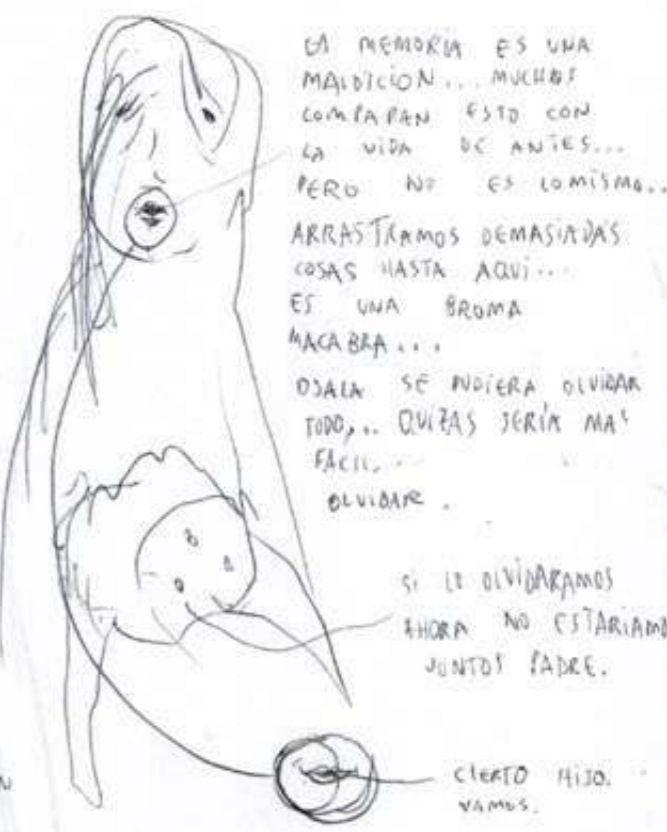 LA MEMORIA ES UNA
MALDICION... MUCHOS
COMPARAN ESTO CON
LA VIDA DE ANTES...
PERO NO ES LO MISMO...
ARRASTRAMOS DEMASIADAS
COSAS HASTA AQUÍ...
ES UNA BROMA
MACABRA...
OJALA SE PUDIERA OLVIDAR
TODO... QUIZAS SERÍA MAS
FACIL...
OLVIDAR.
SI LO OLVIDARAMOS
AHORA NO ESTARIAMO
JUNTOS PADRE.
CIERTO HIJO.
VAMOS.
N